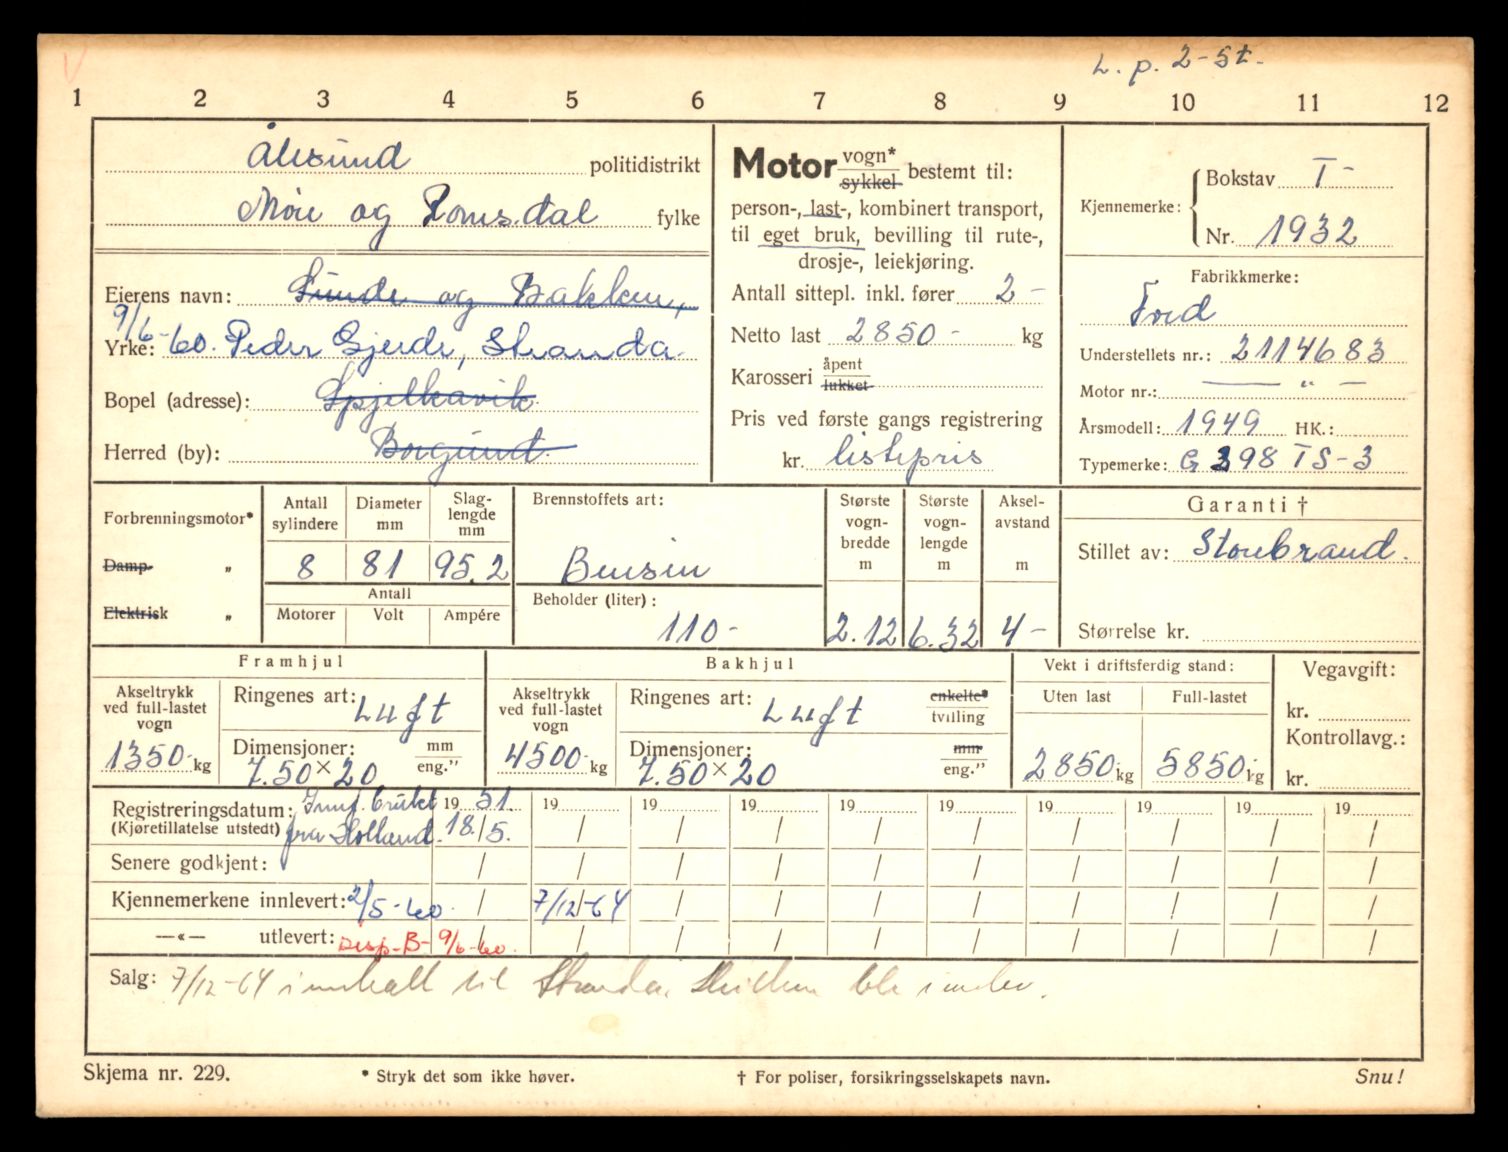 V
L. p. 2-5t.
1 2 3 4 5 6 7 8 9 10 11 12
Ålesund politidistrikt
Møre og Romsdal fylke
Eierens navn: Sunde og Bakken,
9/6-60. Peder Gjerde, Stranda.
Yrke:
Bopel (adresse): Spjelkavik
Herred (by): Borgund.
Motor vogn* sykkel bestemt til:
person-, last-, kombinert transport,
til eget bruk, bevilling til rute-,
drosje-, leiekjøring.
Antall sittepl. inkl. fører 2-
Netto last 2850- kg
Karosseri åpent lukket
Pris ved første gangs registrering
kr. listepris
Kjennemerke: Bokstav T-
Nr. 1932
Fabrikkmerke:
Ford
Understellets nr.: 2114683
Motor nr.: — " —
Årsmodell: 1949 HK.:
Typemerke: G 398 TS-3
Forbrenningsmotor*
Damp- „
Elektrisk „
Antall sylindere
Diameter mm
Slag-lengde mm
8 81 95.2
Antall
Motorer Volt Ampére
Brennstoffets art:
Bensin
Beholder (liter):
110-
Største vogn-bredde m
2.12
Største vogn-lengde m
6.32
Aksel-avstand m
4-
Garanti †
Stillet av: Storebrand.
Størrelse kr.
Framhjul
Akseltrykk ved full-lastet vogn
1350- kg
Ringenes art: Luft
Dimensjoner: mm eng."
7.50 x 20
Bakhjul
Akseltrykk ved full-lastet vogn
4500- kg
Ringenes art: Luft enkelte* tvilling
Dimensjoner: mm eng."
7.50 x 20
Vekt i driftsferdig stand:
Uten last Full-lastet
2850 kg 5850- kg
Vegavgift:
kr.
Kontrollavg.:
kr.
Registreringsdatum: Innf. brukt 1951. 19 19 19 19 19 19 19 19 19
(Kjøretillatelse utstedt) fra Holland. 18/5. / / / / / / / / /
Senere godkjent: / / / / / / / / / /
Kjennemerkene innlevert: 2/5-60. / 7/12-64 / / / / / / / /
—«— utlevert: Disp-B- 9/6-60. / / / / / / / / /
Salg: 7/12-64 innkalt til Stranda. Skiltene ble innlev.
Skjema nr. 229.
* Stryk det som ikke høver.
† For poliser, forsikringsselskapets navn.
Snu!